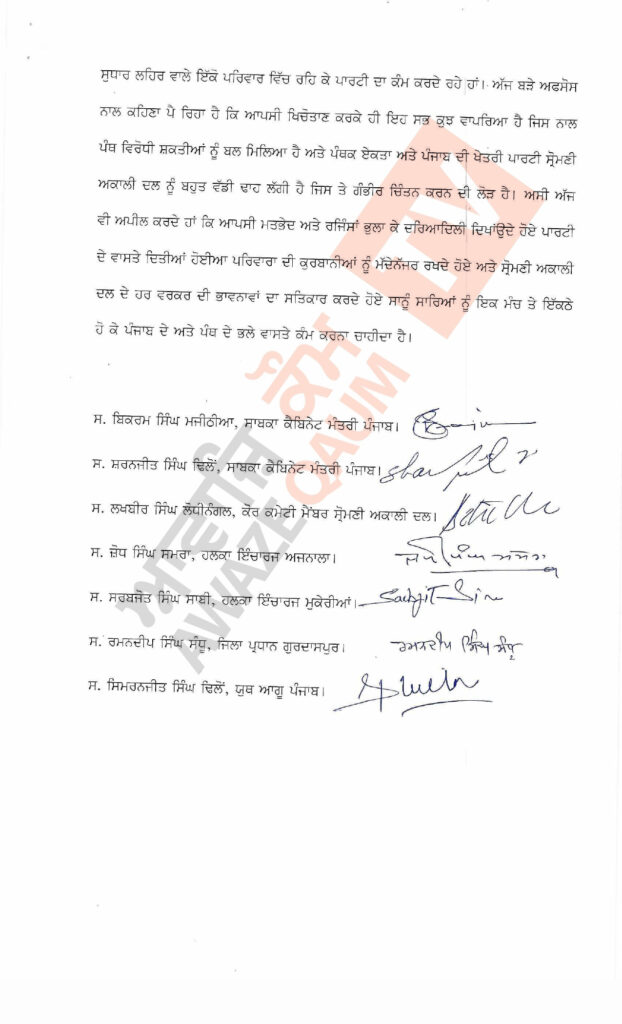 ਸੁਧਾਰ ਲਹਿਰ ਵਾਲੇ ਇੱਕੋ ਪਰਿਵਾਰ ਵਿੱਚ ਰਹਿ ਕੇ ਪਾਰਟੀ ਦਾ ਕੰਮ ਕਰਦੇ ਰਹੇ ਹਾਂ। ਅੱਜ ਬੜੇ ਅਫਸੋਸ
ਨਾਲ ਕਹਿਣਾ ਪੈ ਰਿਹਾ ਹੈ ਕਿ ਆਪਸੀ ਖਿਚੋਤਾਣ ਕਰਕੇ ਹੀ ਇਹ ਸਭ ਕੁਝ ਵਾਪਰਿਆ ਹੈ ਜਿਸ ਨਾਲ
ਪੰਥ ਵਿਰੋਧੀ ਸ਼ਕਤੀਆਂ ਨੂੰ ਬਲ ਮਿਲਿਆ ਹੈ ਅਤੇ ਪੰਥਕ ਏਕਤਾ ਅਤੇ ਪੰਜਾਬ ਦੀ ਖੇਤਰੀ ਪਾਰਟੀ ਸ੍ਰੋਮਣੀ
ਅਕਾਲੀ ਦਲ ਨੂੰ ਬਹੁਤ ਵੱਡੀ ਢਾਹ ਲੱਗੀ ਹੈ ਜਿਸ ਤੇ ਗੰਭੀਰ ਚਿੰਤਨ ਕਰਨ ਦੀ ਲੋੜ ਹੈ। ਅਸੀ ਅੱਜ
ਵੀ ਅਪੀਲ ਕਰਦੇ ਹਾਂ ਕਿ ਆਪਸੀ ਮਤਭੇਦ ਅਤੇ ਰਜਿੰਸਾਂ ਭੁਲਾ ਕੇ ਦਰਿਆਦਿਲੀ ਦਿਖਾਂਉਦੇ ਹੋਏ ਪਾਰਟੀ
ਦੇ ਵਾਸਤੇ ਦਿਤੀਆਂ ਹੋਈਆ ਪਰਿਵਾਰਾ ਦੀ ਕੁਰਬਾਨੀਆਂ ਨੂੰ ਮੱਦੇਨੱਜਰ ਰਖਦੇ ਹੋਏ ਅਤੇ ਸ੍ਰੋਮਣੀ ਅਕਾਲੀ
ਦਲ ਦੇ ਹਰ ਵਰਕਰ ਦੀ ਭਾਵਨਾਵਾਂ ਦਾ ਸਤਿਕਾਰ ਕਰਦੇ ਹੋਏ ਸਾਨੂੰ ਸਾਰਿਆਂ ਨੂੰ ਇਕ ਮੰਚ ਤੇ ਇੱਕਠੇ
ਹੋ ਕੇ ਪੰਜਾਬ ਦੇ ਅਤੇ ਪੰਥ ਦੇ ਭਲੇ ਵਾਸਤੇ ਕੰਮ ਕਰਨਾ ਚਾਹੀਦਾ ਹੈ।
ਸ. ਬਿਕਰਮ ਸਿੰਘ ਮਜੀਠੀਆ, ਸਾਬਕਾ ਕੈਬਿਨੇਟ ਮੰਤਰੀ ਪੰਜਾਬ।
ਸ. ਸ਼ਰਨਜੀਤ ਸਿੰਘ ਢਿਲੋਂ, ਸਾਬਕਾ ਕੈਬਿਨੇਟ ਮੰਤਰੀ ਪੰਜਾਬ।
ਸ. ਲਖਬੀਰ ਸਿੰਘ ਲੋਧੀਨੰਗਲ, ਕੋਰ ਕਮੇਟੀ ਮੈਂਬਰ ਸ੍ਰੋਮਣੀ ਅਕਾਲੀ ਦਲ।
ਸ. ਜ਼ੋਧ ਸਿੰਘ ਸਮਰਾ, ਹਲਕਾ ਇੰਚਾਰਜ ਅਜਨਾਲਾ।
ਸ. ਸਰਬਜੋਤ ਸਿੰਘ ਸਾਬੀ, ਹਲਕਾ ਇੰਚਾਰਜ ਮੁਕੇਰੀਆਂ।
ਸ. ਰਮਨਦੀਪ ਸਿੰਘ ਸੰਧੂ, ਜਿਲਾ ਪ੍ਰਧਾਨ ਗੁਰਦਾਸਪੁਰ। ਰਮਨਦੀਪ ਸਿੰਘ ਸੰਧੂ
ਸ. ਸਿਮਰਨਜੀਤ ਸਿੰਘ ਢਿਲੋਂ, ਯੁਥ ਆਗੂ ਪੰਜਾਬ।
ਅਵਾਜ਼ਿ ਕੌਮ TV
AVAZE QAUM